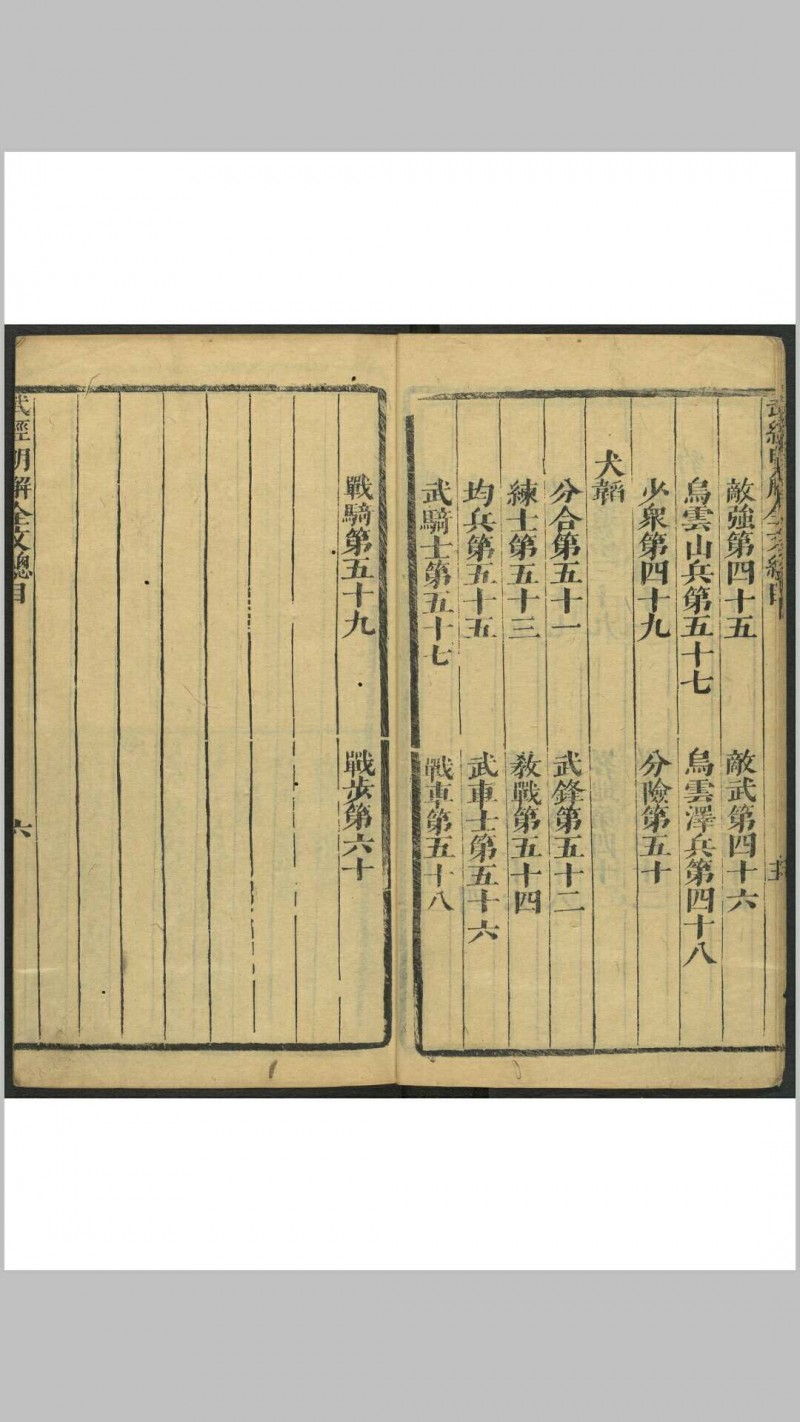 武經明解全文總目
五
敵強第四十五
敵武第四十六
烏雲山兵第五十七
烏雲澤兵第四十八
少衆第四十九
分險第五十
犬韜
分合第五十一
武鋒第五十二
練士第五十三
敎戰第五十四
均兵第五十五
武車士第五十六
武騎士第五十七
戰車第五十八
戰騎第五十九
戰步第六十
武經明解全文總目
六